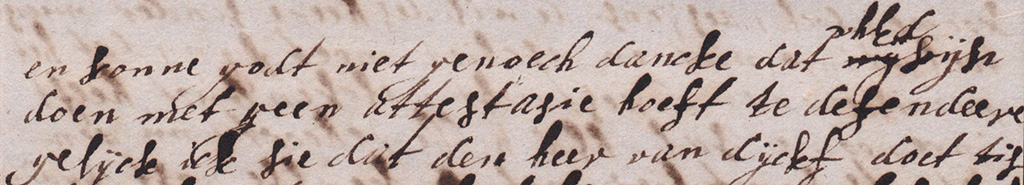 en konne godt niet genoech dancke dat uhEd sijn
doen met geen attestasie hoeft te defendeere
gelijck ick sie dat den heer van dijckf doet tis